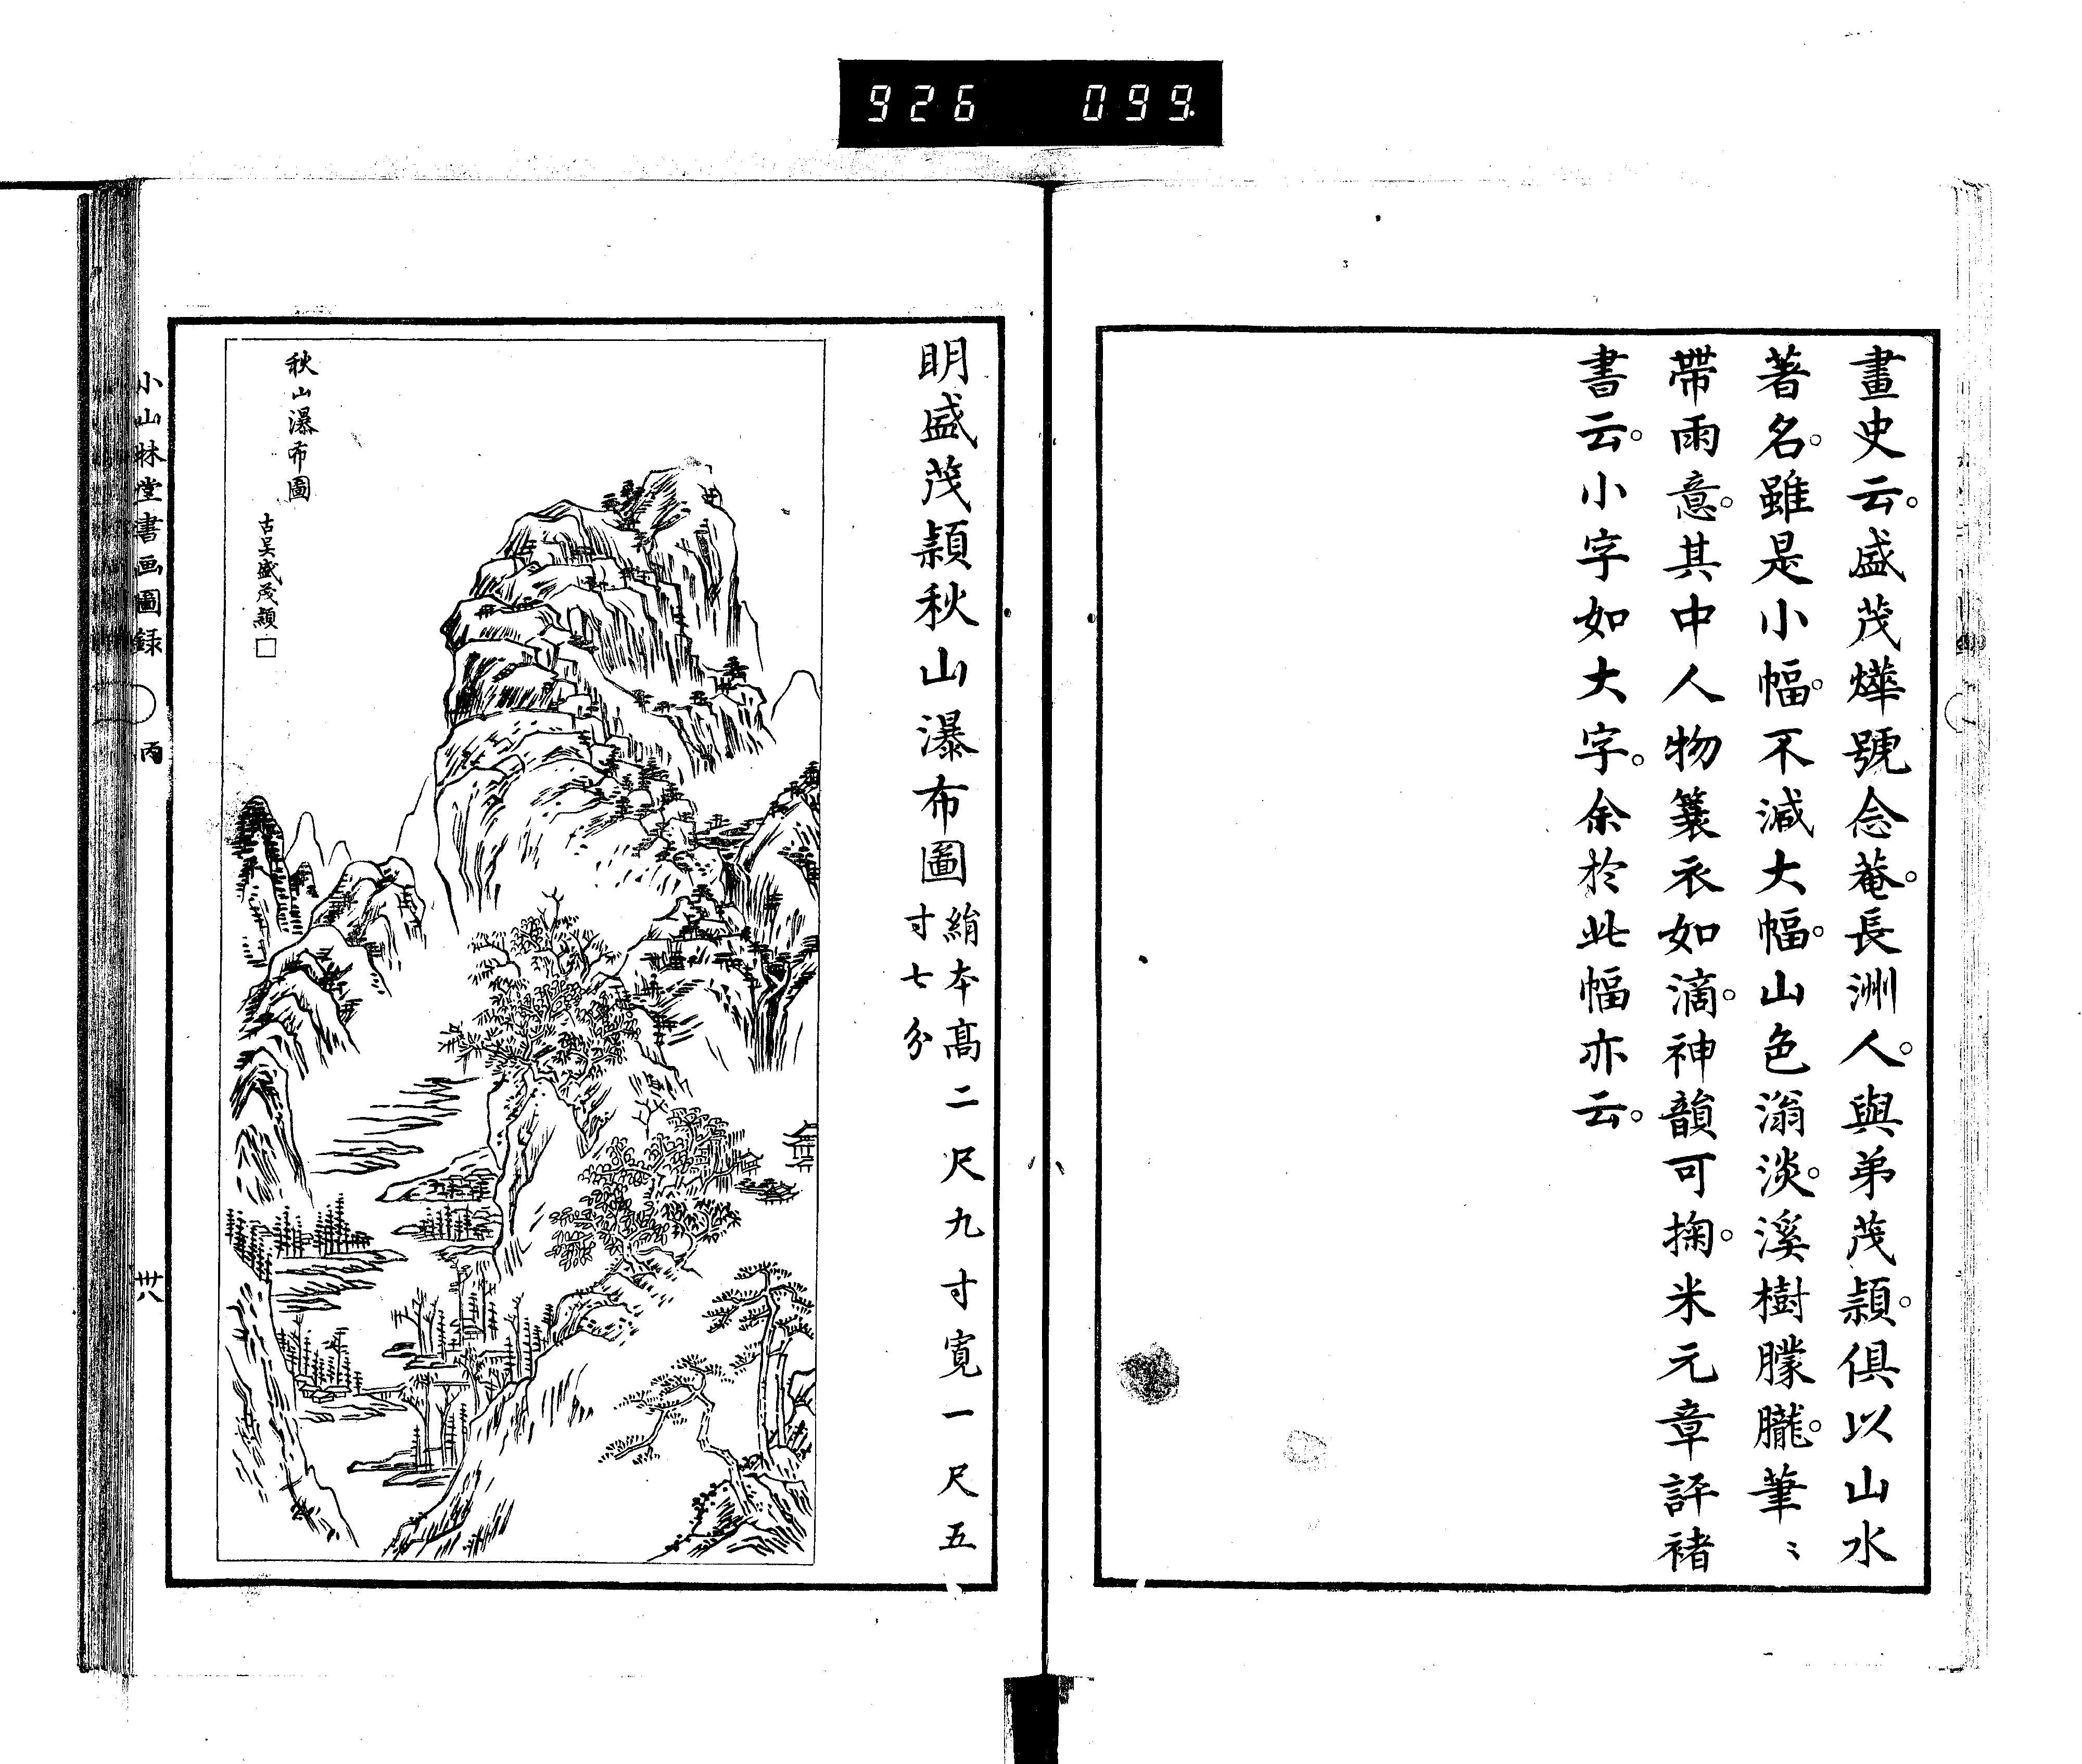 926 099.
畫史云。盛茂燁號念菴。長洲人。與弟茂頴。俱以山水
著名。雖是小幅。不減大幅。山色滃淡。溪樹朦朧。筆〻
帶雨意。其中人物簑衣如滴。神韻可掬。米元章評褚
書云。小字如大字。余於此幅亦云。
明盛茂頴秋山瀑布圖 絹本高二尺九寸寬一尺五
寸七分
秋山瀑布圖
古吴盛茂頴
小山林堂書画圖録 丙 卅八